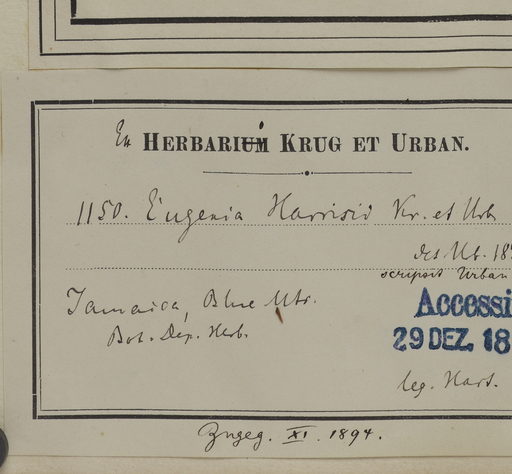 Ex HERBARIUM KRUG ET URBAN.
1150. Eugenia Harrisii Kr. et Urb
det Urb. 18
scripsit Urban
Jamaica, Blue Mts.
Accessi
Bot. Dep. Herb.
29 DEZ. 18
leg. Hart.
Zugeg. XI. 1894.